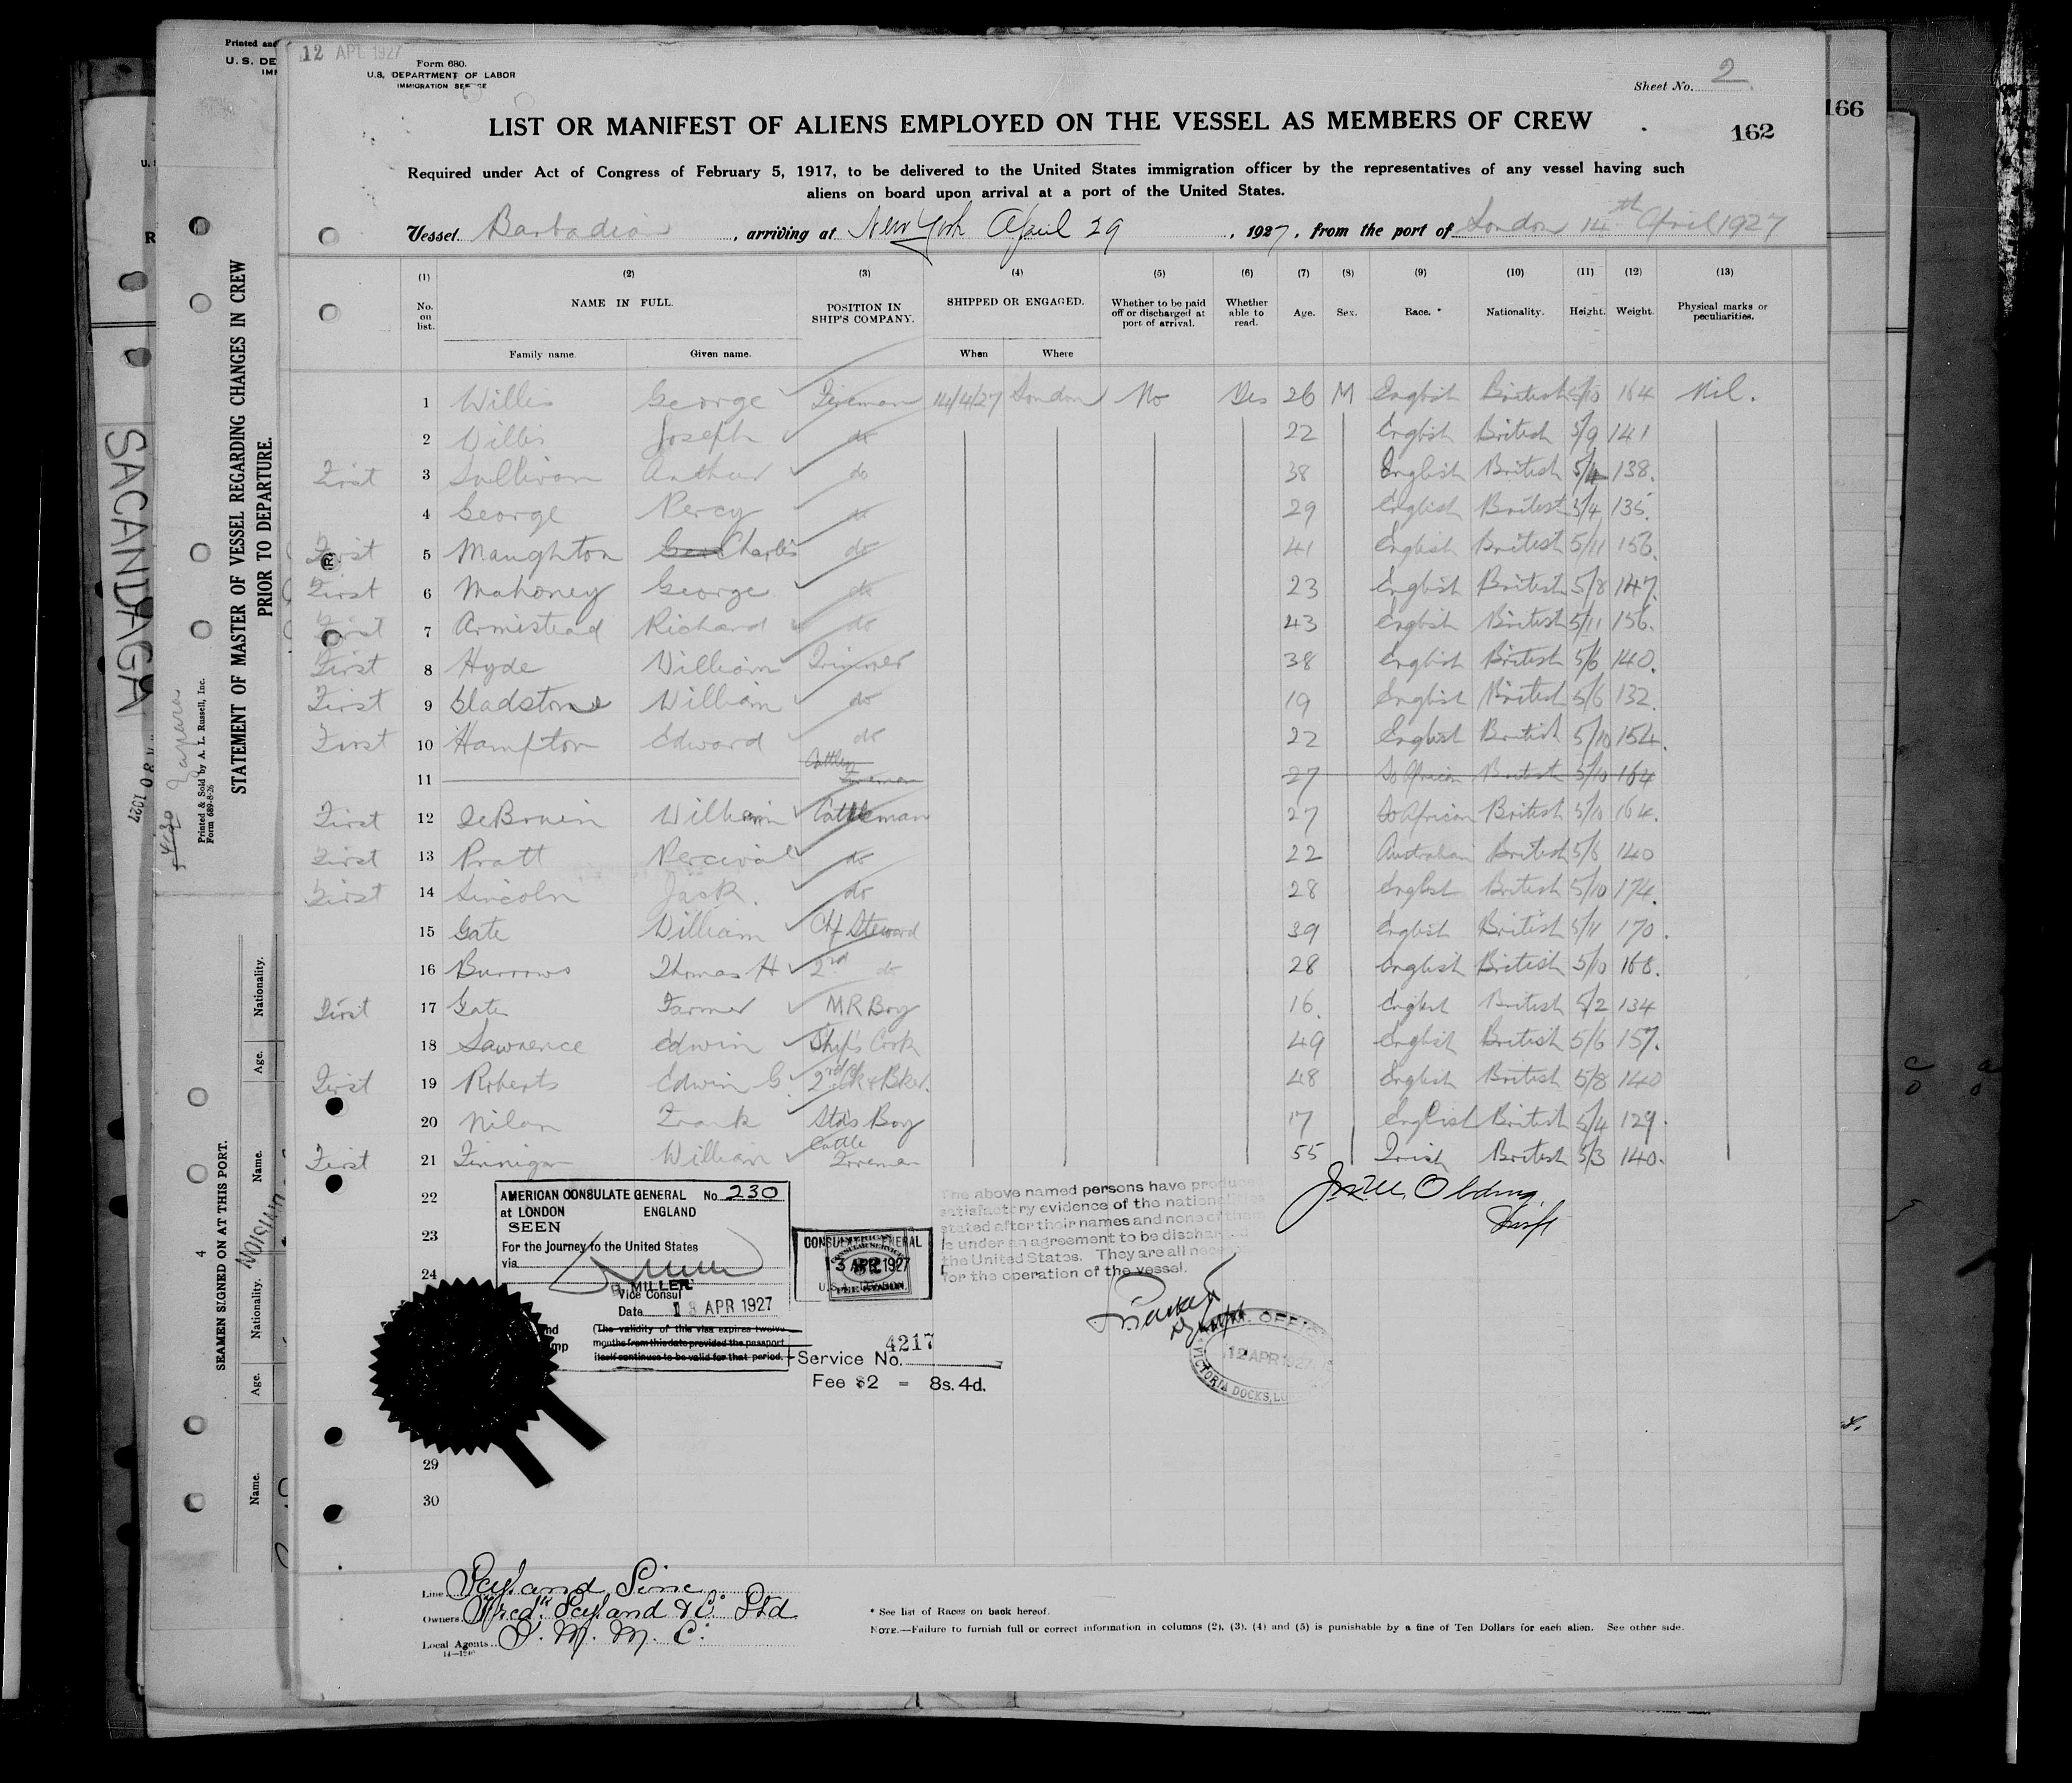 12 APR 1927
Form 680.
U.S. DEPARTMENT OF LABOR
IMMIGRATION SERVICE
Sheet No. 2
LIST OR MANIFEST OF ALIENS EMPLOYED ON THE VESSEL AS MEMBERS OF CREW
162
166
Required under Act of Congress of February 5, 1917, to be delivered to the United States immigration officer by the representatives of any vessel having such
aliens on board upon arrival at a port of the United States.
Vessel Barbadian, arriving at New York April 29, 1927, from the port of London 14th April 1927
(1) (2) (3) (4) (5) (6) (7) (8) (9) (10) (11) (12) (13)
No. on list. NAME IN FULL. POSITION IN SHIP'S COMPANY. SHIPPED OR ENGAGED. Whether to be paid off or discharged at port of arrival. Whether able to read. Age. Sex. Race. * Nationality. Height. Weight. Physical marks or peculiarities.
Family name. Given name. When Where
1 Willis George Fireman 14/4/27 London No Yes 26 M English British 5/10 164 Nil.
2 Willis Joseph do 22 English British 5/9 141
First 3 Sullivan Arthur do 38 English British 5/4 138.
4 George Percy do 29 English British 5/4 135.
First 5 Maughton Geo Charles do 41 English British 5/11 156.
First 6 Mahoney George do 23 English British 5/8 147.
First 7 Armistead Richard do 43 English British 5/11 156.
First 8 Hyde William Trimmer 38 English British 5/6 140.
First 9 Gladstone William do 19 English British 5/6 132.
First 10 Hampton Edward do 22 English British 5/10 154.
11 Cattle Foreman 27 So African British 5/10 164
First 12 DeBruin William Cattleman 27 So African British 5/10 164.
First 13 Pratt Percival do 22 Australian British 5/6 140
First 14 Lincoln Jack. do 28 English British 5/10 174.
15 Gate William Chf Steward 39 English British 5/11 170.
16 Burrows Thomas H 2nd do 28 English British 5/10 168.
First 17 Gate Farmer M R Boy 16. English British 5/2 134
18 Lawrence Edwin Ship's Cook 49 English British 5/6 157.
First 19 Roberts Edwin G. 2nd Ck & Bker. 48 English British 5/8 140
20 Nilan Frank Stds Boy 17 English British 5/4 129.
First 21 Finnigan William Cattle Foreman 55 Irish British 5/3 140.
22
23
24
29
30
AMERICAN CONSULATE GENERAL No. 230
at LONDON ENGLAND
SEEN
For the Journey to the United States
via
MILLER
Vice Consul
Date 13 APR 1927
(The validity of this visa expires twelve
months from this date provided the passport
itself continues to be valid for that period.
13 APR 1927
Service No. 4217
Fee $2 = 8s. 4d.
The above named persons have produced
satisfactory evidence of the nationalities
stated after their names and none of them
is under an agreement to be discharged
the United States. They are all necessary
for the operation of the vessel.
12 APR 1927
VICTORIA DOCKS, LO
Line Leyland Line
Owners Fredk. Leyland & Co Ltd
Local Agents I. M. M. Co.
* See list of Races on back hereof.
NOTE.—Failure to furnish full or correct information in columns (2), (3), (4) and (5) is punishable by a fine of Ten Dollars for each alien. See other side.
Printed and
U. S. DE
STATEMENT OF MASTER OF VESSEL REGARDING CHANGES IN CREW
PRIOR TO DEPARTURE.
Printed & Sold by A. L. Russell, Inc.
Form 689-8-26
SACANDAGA
SEAMEN SIGNED ON AT THIS PORT.
4
Name. Age. Nationality. Name. Age. Nationality.